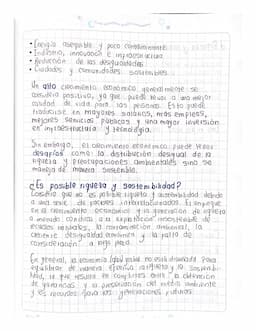 • Energía asequible y poco contaminante
• Industria, innovación e infraestructura
• Reducción de las desigualdades
• Ciudades y comunidades sostenibles
Un alto crecimiento económico generalmente se
considera positivo, ya que puede llevar a una mejor
calidad de vida para las personas. Esto puede
traducirse en mayores salarios, más empleos,
mejores servicios públicos y una mayor inversión
en infraestructura y tecnología.
Sin embargo, el crecimiento económico puede tener
desafíos como la distribución desigual de la
riqueza y preocupaciones ambientales si no se
maneja de manera sostenible.
¿Es posible riqueza y sostenibilidad?
Considero que no es posible riqueza y sostenibilidad debido
a una serie de factores interrelacionados. El enfoque
en el crecimiento económico y la generación de riqueza
a menudo conduce a la explotación insostenible de
recursos naturales, la contaminación ambiental, la
creciente desigualdad económica y la falta de
consideración a largo plazo.
En general, la economía actual no está diseñada para
equilibrar de manera efectiva la riqueza y la sostenibi-
lidad, lo que resulta en conflictos entre la obtención
de ganancias y la preservación del medio ambiente
y los recursos para las generaciones futuras.